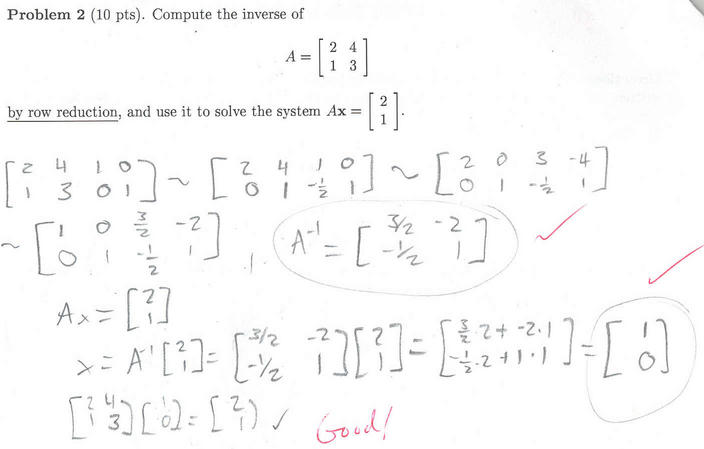 Problem 2 (10 pts). Compute the inverse of
A = [ 2 4
1 3 ]
by row reduction, and use it to solve the system Ax = [ 2
1 ].
[ 2 4 1 0 ] ~ [ 2 4 1 0 ] ~ [ 2 0 3 -4 ]
[ 1 3 0 1 ] [ 0 1 -1/2 1 ] [ 0 1 -1/2 1 ]
~ [ 1 0 3/2 -2 ] , A⁻¹ = [ 3/2 -2 ]
[ 0 1 -1/2 1 ] [ -1/2 1 ] ✓
Ax = [ 2
1 ] ✓
x = A⁻¹ [ 2 ] = [ 3/2 -2 ] [ 2 ] = [ 3/2·2 + -2·1 ] = [ 1 ]
[ 1 ] [ -1/2 1 ] [ 1 ] [ -1/2·2 + 1·1 ] [ 0 ]
[ 2 4 ] [ 1 ] = [ 2 ] ✓
[ 1 3 ] [ 0 ] [ 1 ]
Good!